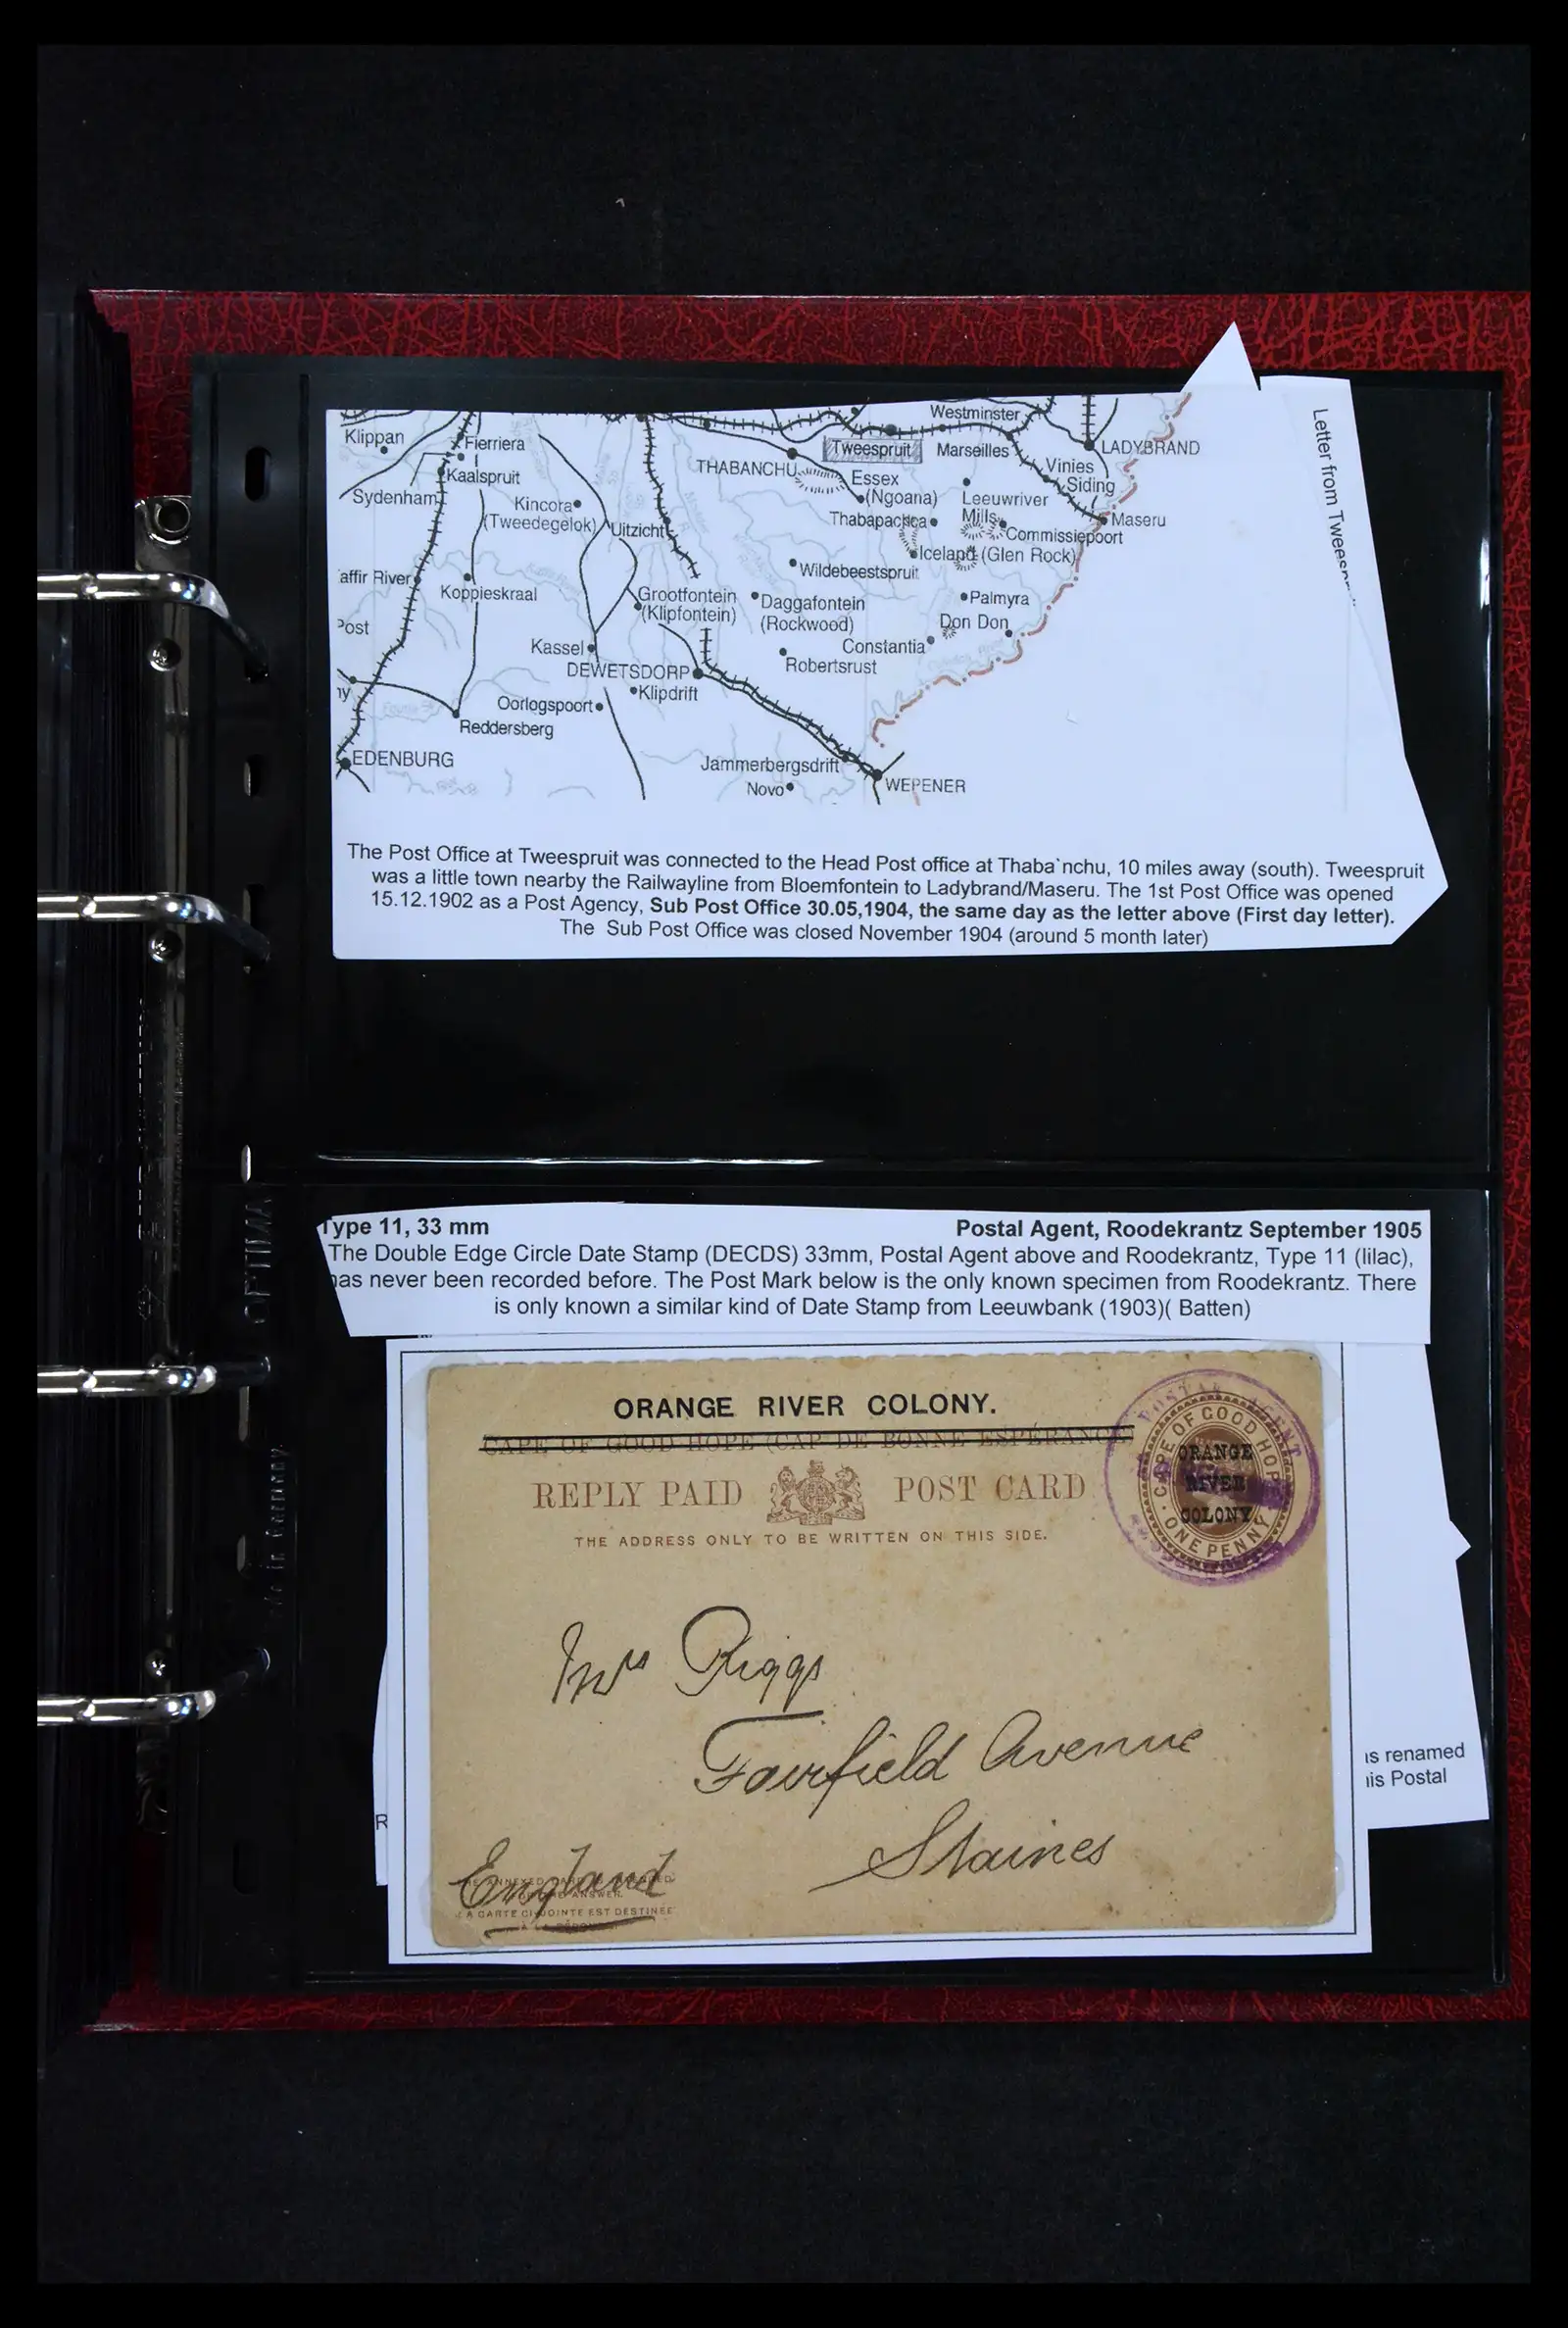 Westminster
Klippan
Fierriera
Tweespruit
Marseilles
LADYBRAND
THABANCHU
Vinies
Siding
Kaalspruit
Essex
(Ngoana)
Sydenham
Kincora
(Tweedegelok)
Leeuwriver
Mills
Uitzicht
Thabapachca
Maseru
Commissiepoort
Iceland (Glen Rock)
affir River
Wildebeestspruit
Koppieskraal
Grootfontein
(Klipfontein)
Daggafontein
(Rockwood)
Palmyra
Post
Don Don
Kassel
Constantia
DEWETSDORP
Robertsrust
Klipdrift
ny
Oorlogspoort
Reddersberg
EDENBURG
Jammerbergsdrift
Novo
WEPENER
Letter from Tweesp
The Post Office at Tweespruit was connected to the Head Post office at Thaba`nchu, 10 miles away (south). Tweespruit
was a little town nearby the Railwayline from Bloemfontein to Ladybrand/Maseru. The 1st Post Office was opened
15.12.1902 as a Post Agency, Sub Post Office 30.05,1904, the same day as the letter above (First day letter).
The Sub Post Office was closed November 1904 (around 5 month later)
OPTIMA
Made in Germany
Type 11, 33 mm Postal Agent, Roodekrantz September 1905
The Double Edge Circle Date Stamp (DECDS) 33mm, Postal Agent above and Roodekrantz, Type 11 (lilac),
has never been recorded before. The Post Mark below is the only known specimen from Roodekrantz. There
is only known a similar kind of Date Stamp from Leeuwbank (1903)( Batten)
ORANGE RIVER COLONY.
CAPE OF GOOD HOPE (CAP DE BONNE ESPÉRANCE)
REPLY PAID POST CARD
THE ADDRESS ONLY TO BE WRITTEN ON THIS SIDE.
POSTAL AGENT
CAPE OF GOOD HOPE
ORANGE
RIVER
COLONY
ONE PENNY
Mrs Riggs
Fairfield Avenue
Staines
England
THE ANNEXED CARD IS INTENDED
FOR THE ANSWER.
LA CARTE CI-JOINTE EST DESTINÉE
À LA RÉPONSE
as renamed
his Postal
R